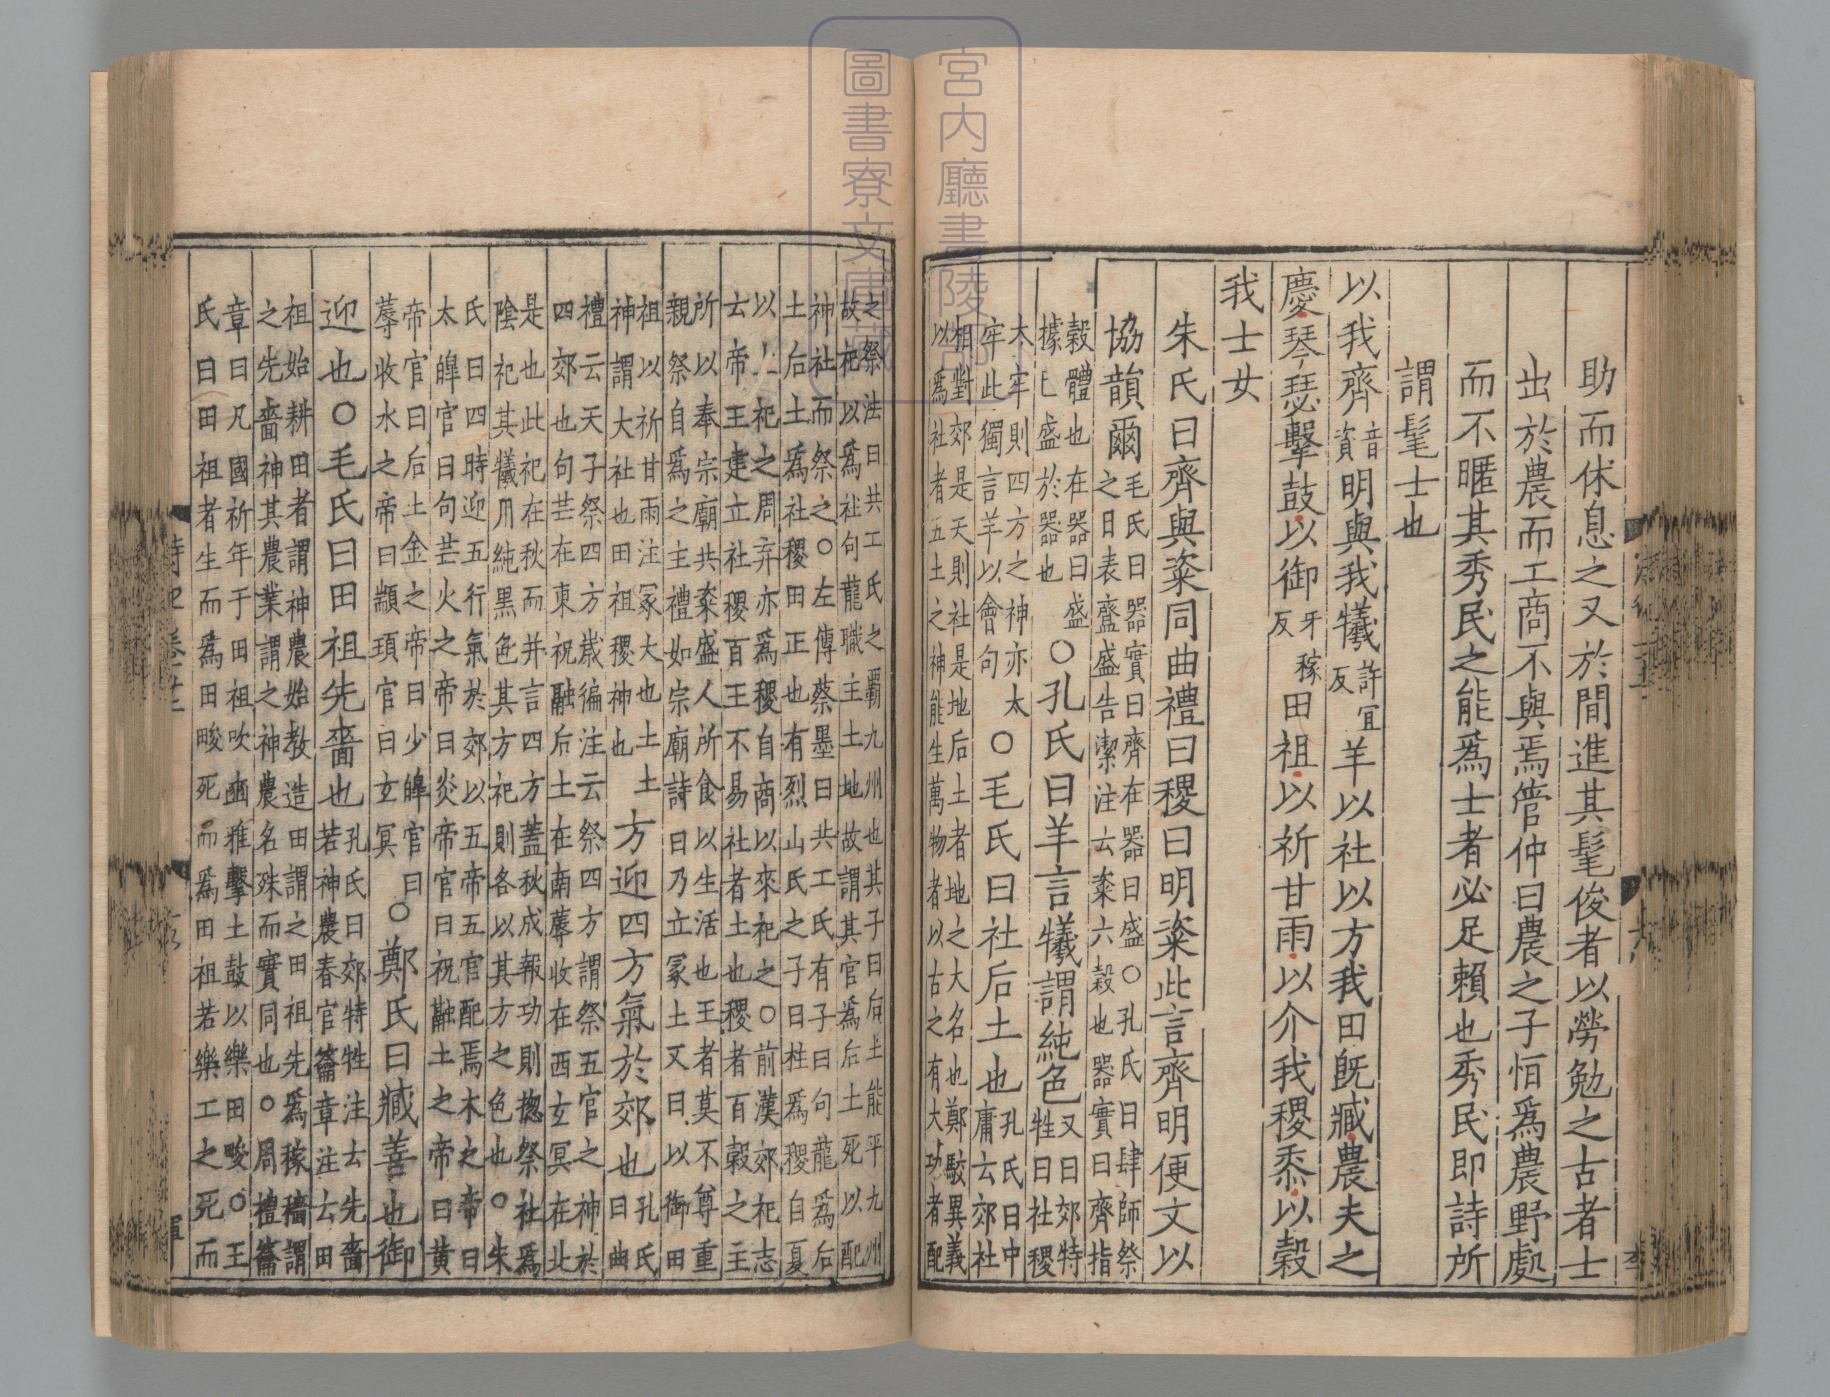 助而休息之又於間進其髦俊者以勞勉之古者士
出於農而工商不與焉管仲曰農之子恒爲農野處
而不暱其秀民之能爲士者必足賴也秀民即詩所
謂髦士也
以我齊音資明與我犧許宜反羊以社以方我田既臧農夫之
慶琴瑟擊鼓以御牙稼反田祖以祈甘雨以介我稷黍以穀
我士女
朱氏曰齊與粢同曲禮曰稷曰明粢此言齊明便文以
協韻爾毛氏曰器實曰齊在器曰盛○孔氏曰肆師祭
之日表齍盛告潔注云粢六穀也器實曰齊指
穀體也在器曰盛
據已盛於器也○孔氏曰羊言犧謂純色又曰郊特
牲曰社稷
太牢則四方之神亦太
牢此獨言羊以會句○毛氏曰社后土也孔氏曰中
庸云郊社
相對郊是天則社是地后土者地之大名也鄭駁異義
以爲社者五土之神能生萬物者以古之有大功者配
之祭法曰共工氏之霸九州也其子曰后土能平九州
故祀以爲社句龍職主土地故謂其官爲后土死以配
神社而祭之○左傳蔡墨曰共工氏有子曰句龍爲后
土后土爲社稷田正也有烈山氏之子曰柱爲稷自夏
以上祀之周弃亦爲稷自商以來祀之○前漢郊祀志
云帝王建立社稷百王不易社者土也稷者百穀之主
所以奉宗廟共粢盛人所食以生活也王者莫不尊重
親祭自爲之主禮如宗廟詩曰乃立冢土又曰以御田
祖以祈甘雨注冢大也土土
神謂大社也田祖稷神也方迎四方氣於郊也孔氏
曰曲
禮云天子祭四方歲徧注云祭四方謂祭五官之神於
四郊也句芒在東祝融后土在南蓐收在西玄冥在北
是也此祀在秋而并言四方蓋秋成報功則揔祭社爲
陰祀其犧用純黑色其方祀則各以其方之色也○朱
氏曰四時迎五行氣於郊以五帝五官配焉木之帝曰
太皥官曰句芒火之帝曰炎帝官曰祝融土之帝曰黄
帝官曰后土金之帝曰少皥官曰
蓐收水之帝曰顓頊官曰玄冥○鄭氏曰臧善也御
迎也○毛氏曰田祖先嗇也孔氏曰郊特牲注云先嗇
若神農春官籥章注云田
祖始耕田者謂神農始教造田謂之田祖先爲稼穡謂
之先嗇神其農業謂之神農名殊而實同也○周禮籥
章曰凡國祈年于田祖吹豳雅擊土鼓以樂田畯○王
氏曰田祖者生而爲田畯死而爲田祖若樂工之死而
宮内廳書陵部
圖書寮文庫藏